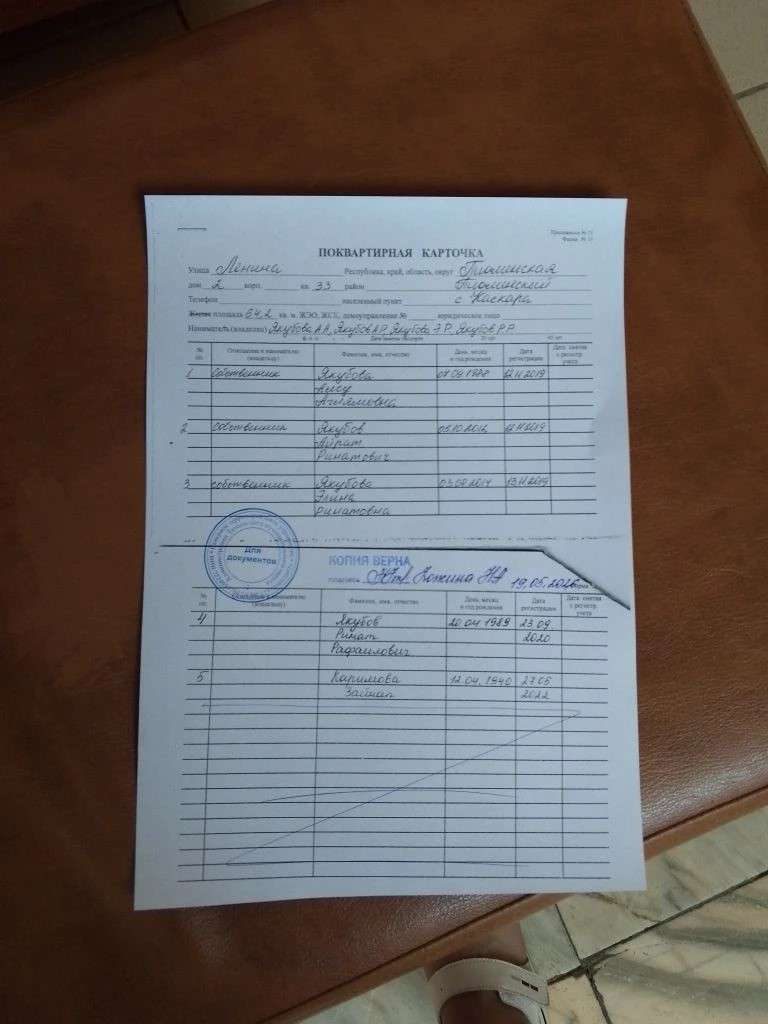 Приложение № 13
Форма № 10
ПОКВАРТИРНАЯ КАРТОЧКА
Улица Ленина Республика, край, область, округ Тюменская
дом 2 корп. кв. 33 район Тюменский
Телефон населенный пункт с. Каскара
Жилая площадь 64,2 кв. м. ЖЭО, ЖСК, домоуправление № юридическое лицо
Наниматель (владелец) Якубова А.А, Якубов А.Р, Якубова Э.Р, Якубов Р.Р.
№ Отношение к нанимателю (владельцу) Фамилия, имя, отчество День, месяц и год рождения Дата регистрации Дата снятия с регистр. учета
1 Собственник Якубова 07.09.1988 12.11.2019
Алсу
2 собственник Якубов 05.10.2012 12.11.2019
Айрат
Ринатович
3 собственник Якубова 13.11.2019
Элина
Ринатовна
Для документов
КОПИЯ ВЕРНА
подпись 19.05.2026
№ Отношение к нанимателю (владельцу) Фамилия, имя, отчество День, месяц и год рождения Дата регистрации Дата снятия с регистр. учета
4 Якубов 20.04.1989 23.09.
Ринат 2020
Рафаилович
5 Каримова 12.04.1940 27.05
Зайнап 2022